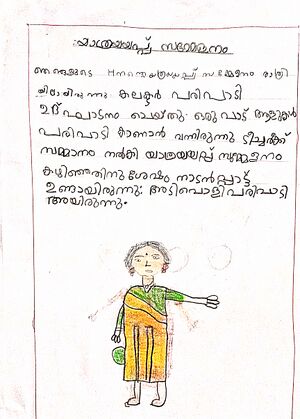 യാത്രയയപ്പ് സമ്മേളനം
ഞങ്ങളുടെ യാത്രയയപ്പ് സമ്മേളനം രാത്രി
യിലായിരുന്നു കലക്ടർ പരിപാടി
ഉദ്ഘാടനം ചെയ്തു. ഒരുപാട് ആളുകൾ
പരിപാടി കാണാൻ വന്നിരുന്നു ടീച്ചർക്ക്
സമ്മാനം നൽകി യാത്രയയപ്പ് സമ്മേളനം
കഴിഞ്ഞതിനു ശേഷം നാടൻപ്പാട്ട്
ഉണ്ടായിരുന്നു. അടിപൊളി പരിപാടി
ആയിരുന്നു.